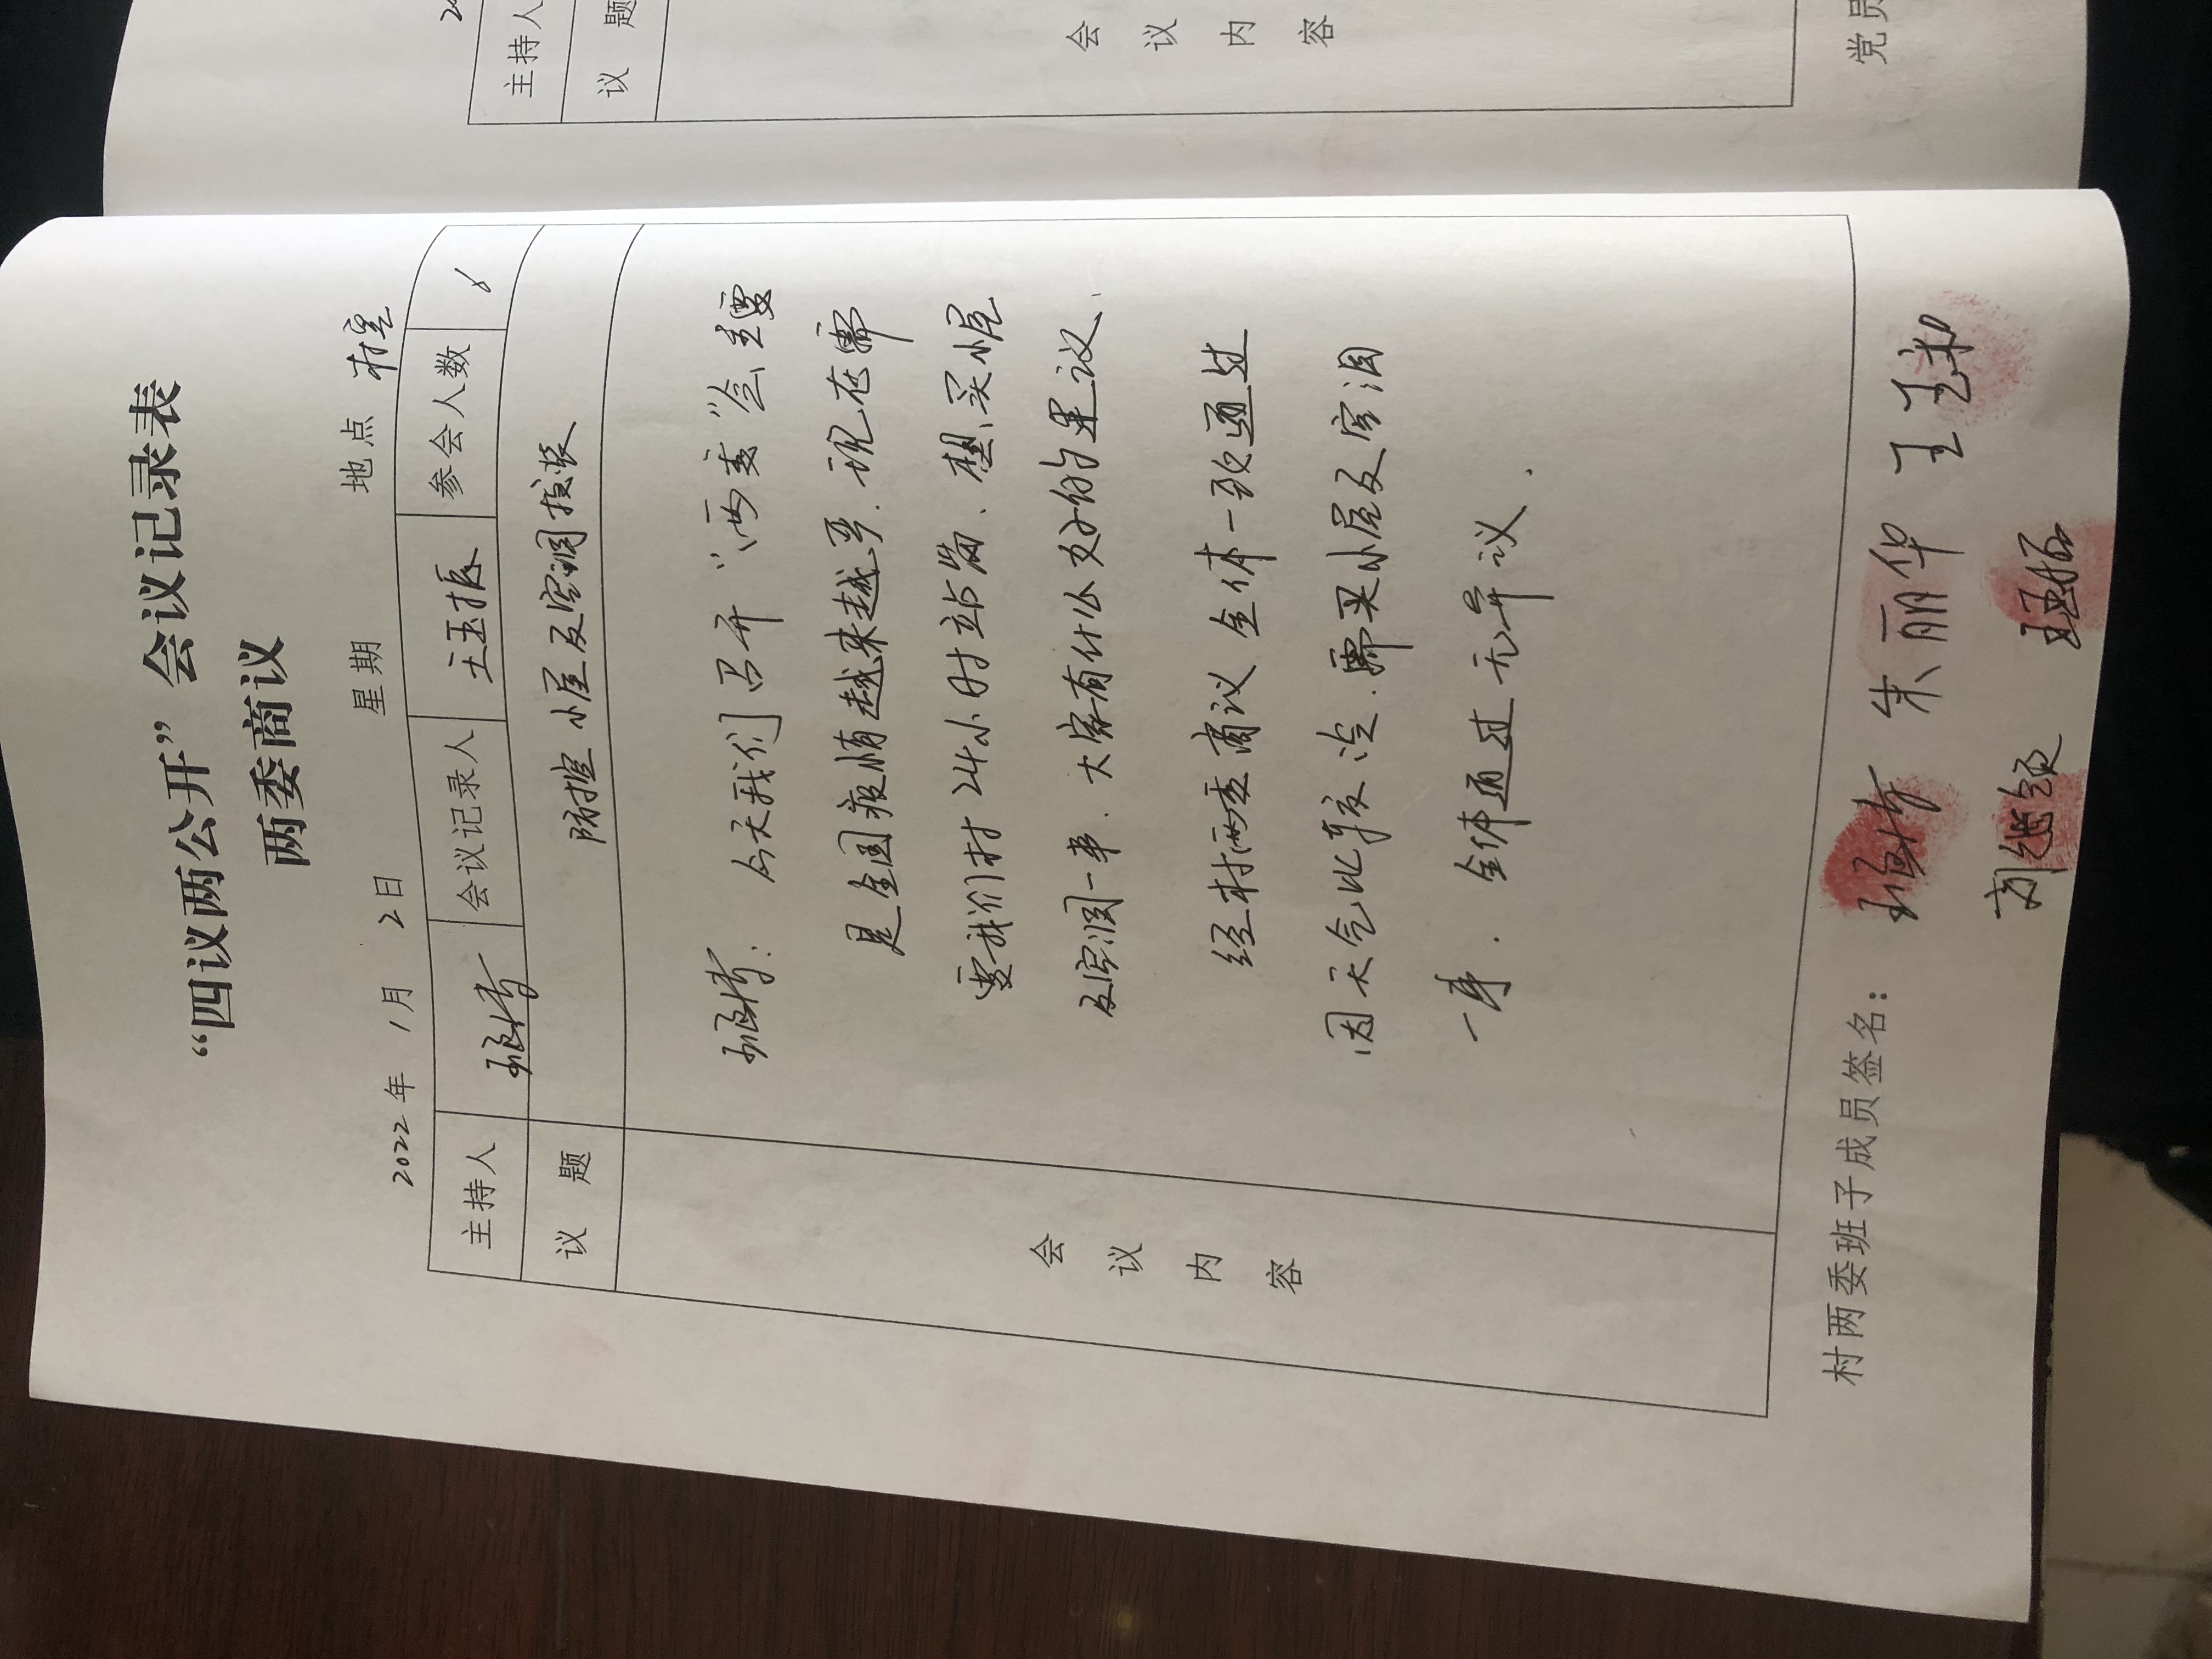 “四议两公开”会议记录表
两委商议
2022年 1月 2日 星期 地点 村室
主持人 会议记录人 王玉振 参会人数
议 题 防控小屋及空调按装
会议内容
今天我们召开“两委”会主要
是全国疫情越来越严.现在需
要我们村24小时站岗、想买小屋
及空调一事.大家有什么好的建议、
经村两委商议 全体一致通过
因天气比较冷.需买小屋及空调
一事.全体通过无异议.
村两委班子成员签名: 朱丽华
刘继领 王玉振
主持人
议 题
会议内容
党员